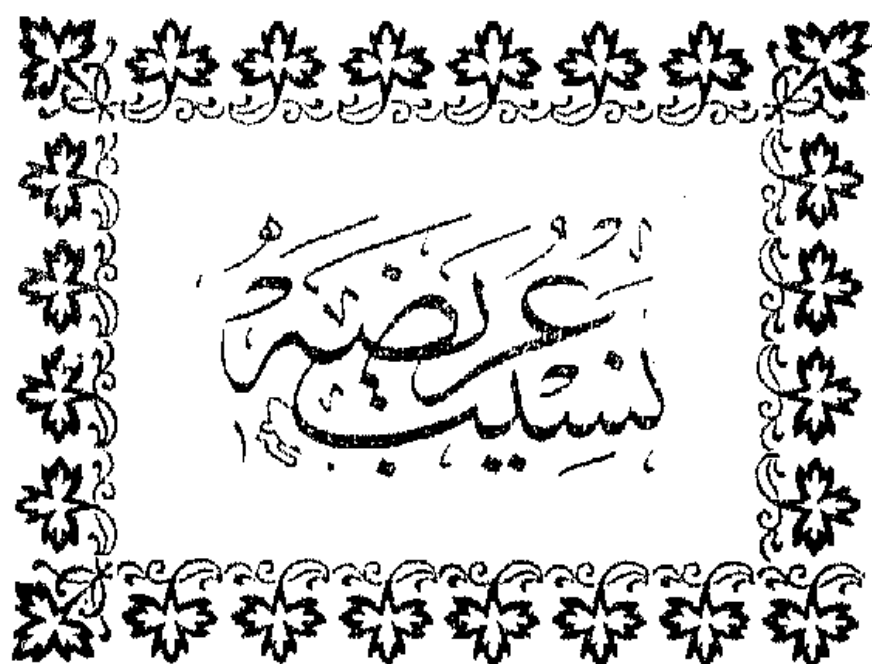 نسيب عريضة